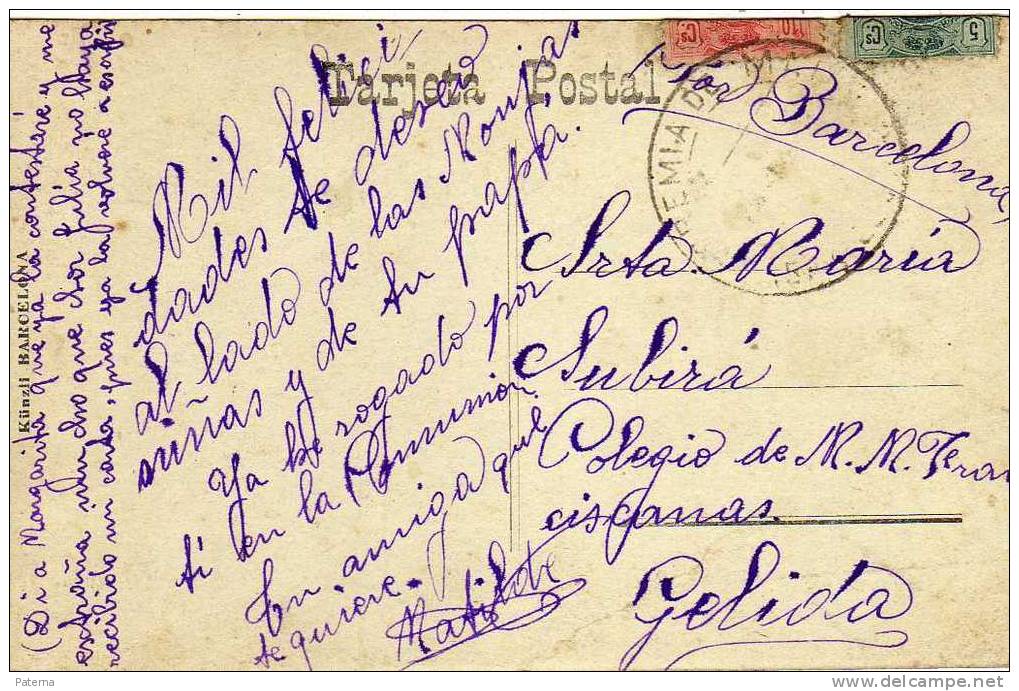 Tarjeta Postal
10 Cs
5 Cs
PREMIA DE MAR
Mil felici
dades te deseo
al lado de las Monjas,
niñas y de tu papá.
Ya he rogado por
ti en la Comunión
Tu amiga que
te quiere.
Matilde
Por Barcelona
Srta. María
Subirá
Colegio de M. M. Fran
ciscanas.
Gelida
(Di a Margarita que ya la contestaré y me
extraña mucho que Sor Julia no haya
recibido mi carta, pues ya la volveré a escribir
Künzli BARCELONA
Paterna
delcampe.net